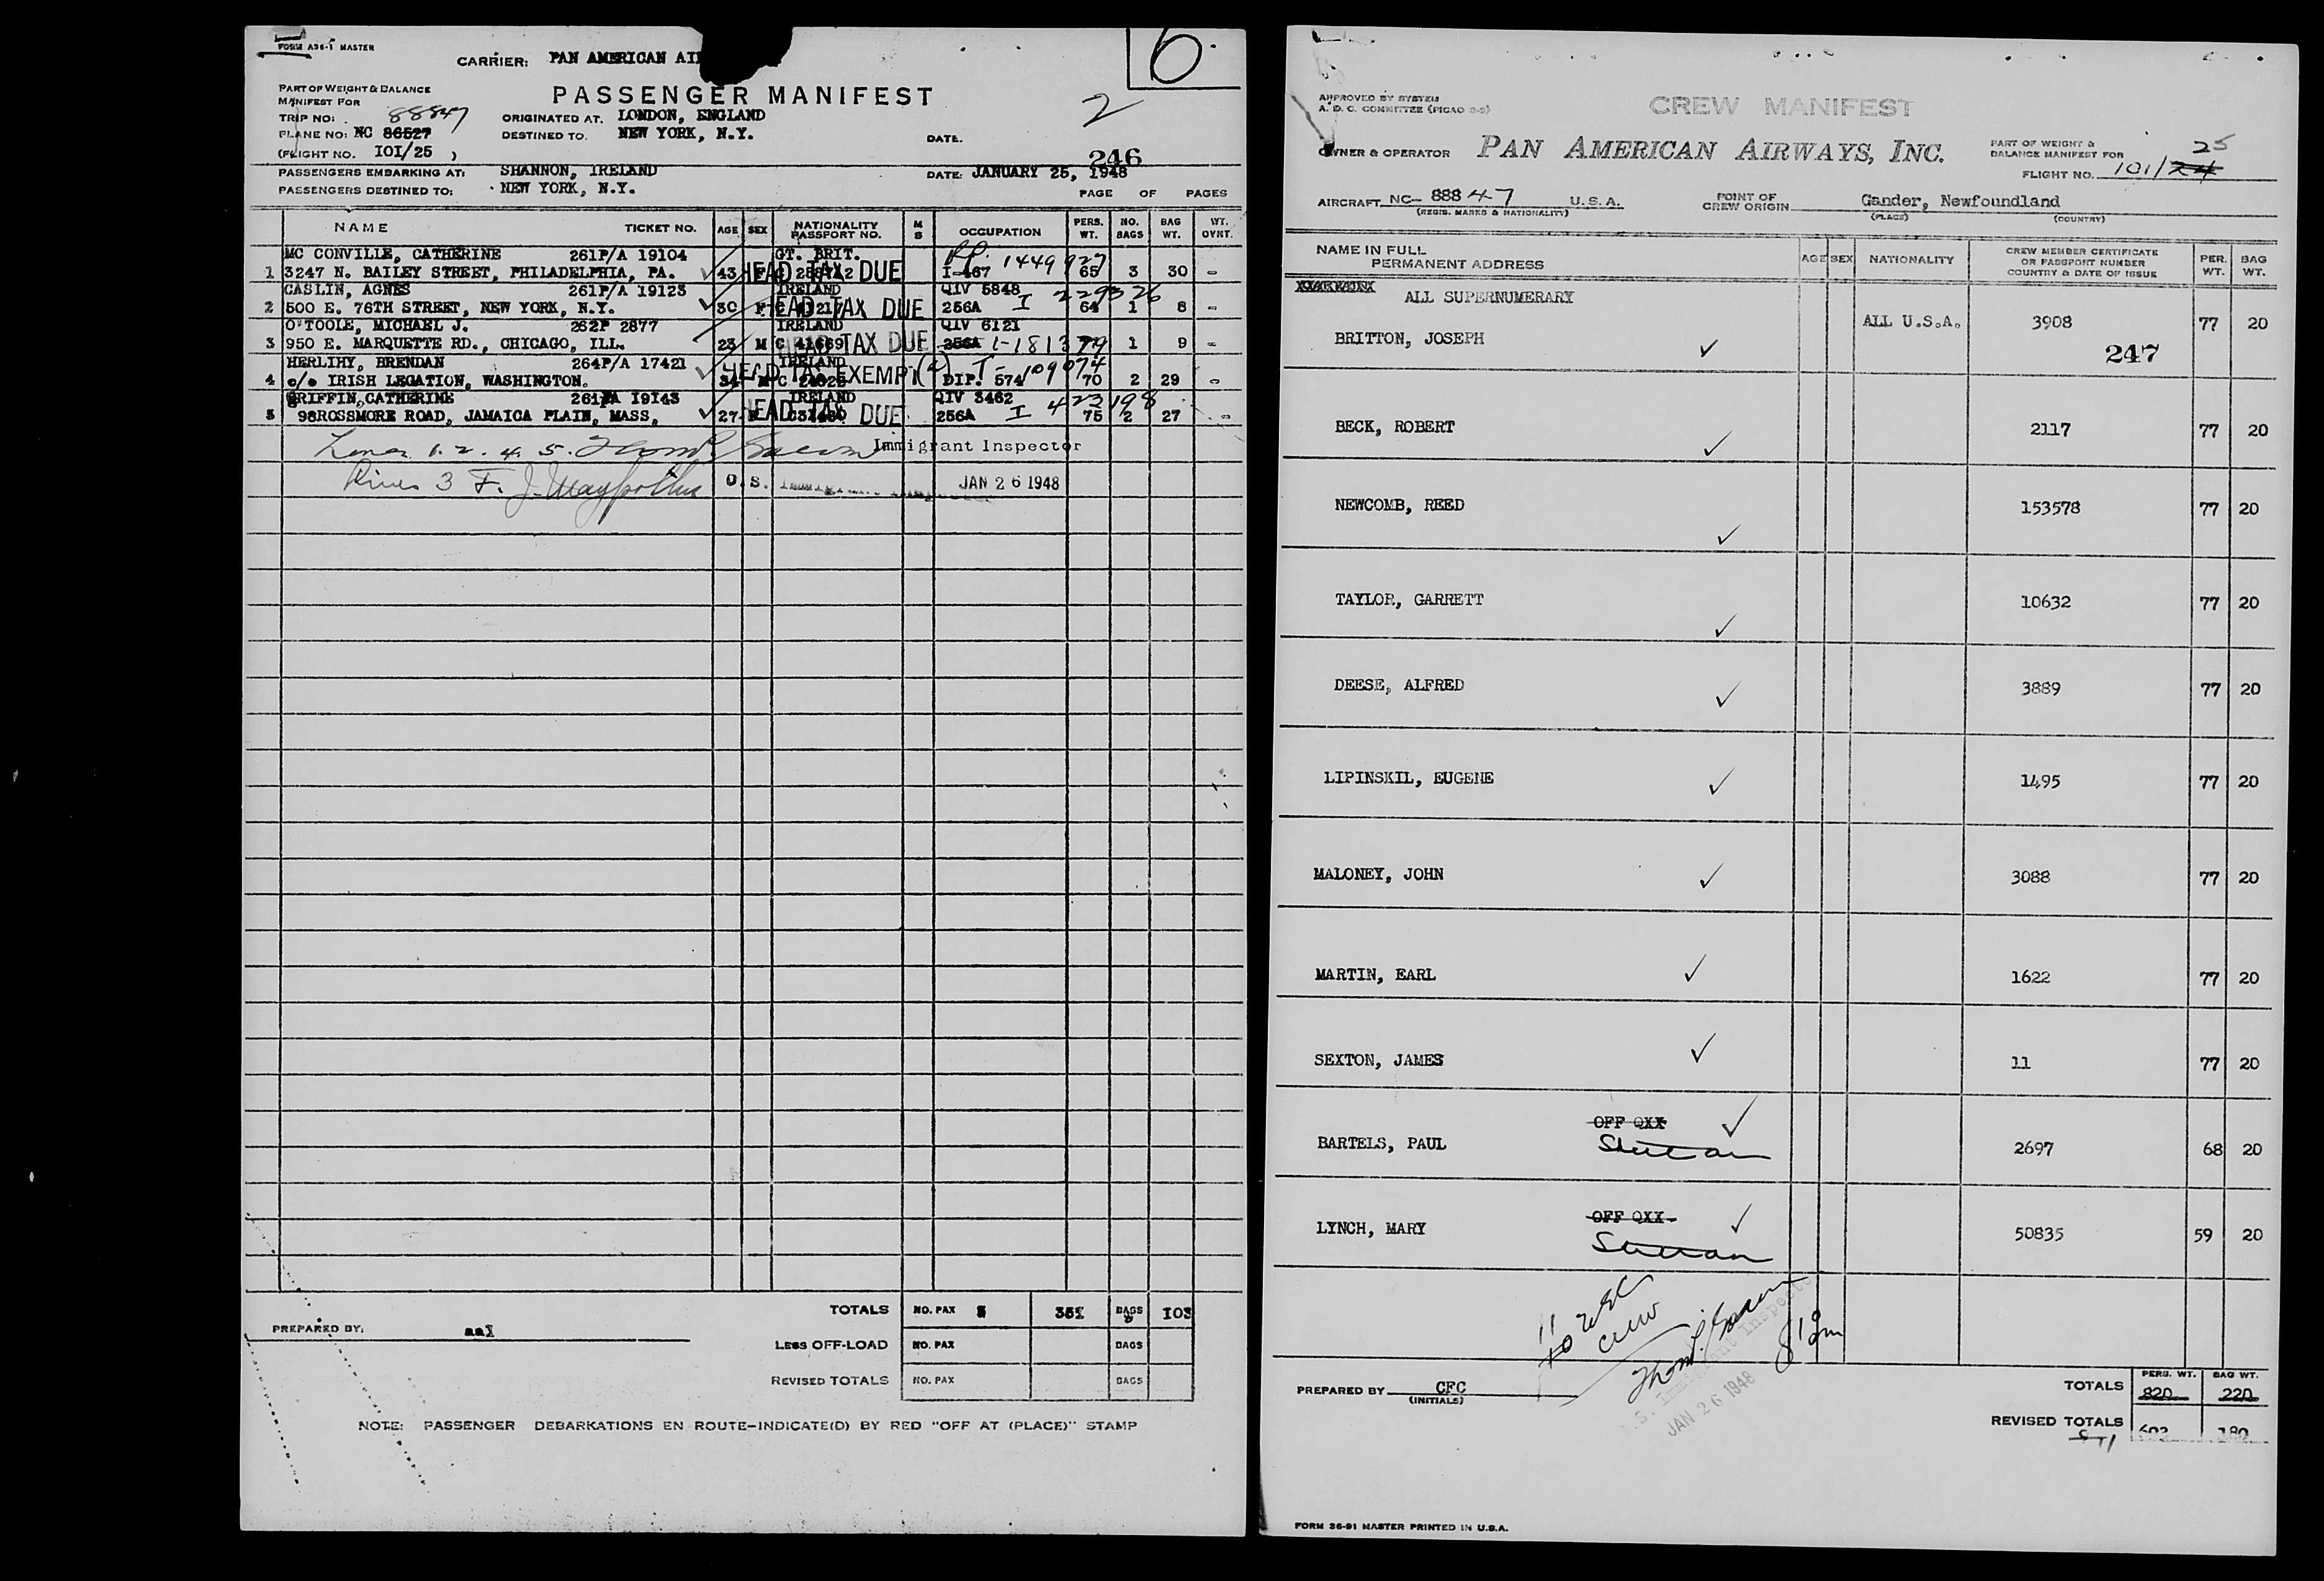 FORM A36-1 MASTER
CARRIER: PAN AMERICAN AI
6.
PART OF WEIGHT & BALANCE
MANIFEST FOR
PASSENGER MANIFEST
2
TRIP NO: 88847
ORIGINATED AT. LONDON, ENGLAND
PLANE NO: NC 86527
DESTINED TO. NEW YORK, N.Y.
DATE.
(FLIGHT NO. IOI/25 )
246
PASSENGERS EMBARKING AT: SHANNON, IRELAND
DATE: JANUARY 25, 1948
PASSENGERS DESTINED TO: NEW YORK, N.Y.
PAGE OF PAGES
NAME TICKET NO. AGE SEX NATIONALITY PASSPORT NO. M S OCCUPATION PERS. WT. NO. BAGS BAG WT. WT. OVRT.
MC CONVILLE, CATHERINE 261P/A 19104 GT. BRIT. 1449927
1 3247 N. BAILEY STREET, PHILADELPHIA, PA. 43 F HEAD TAX DUE I-467 65 3 30 -
CASLIN, AGNES 261P/A 19123 IRELAND QIV 5848 I 229326
2 500 E. 76TH STREET, NEW YORK, N.Y. 30 F HEAD TAX DUE 256A 64 1 8 -
O'TOOLE, MICHAEL J. 262P 2877 IRELAND QIV 6121
3 950 E. MARQUETTE RD., CHICAGO, ILL. 23 M C 41669 HEAD TAX DUE 256A I-181379 1 9 -
HERLIHY, BRENDAN 264P/A 17421 IRELAND I-109074
4 c/o IRISH LEGATION, WASHINGTON. 34 M HEAD TAX EXEMPT DIP. 574 70 2 29 -
GRIFFIN, CATHERINE 261PA I9143 IRELAND QIV 3462 I 423198
5 98ROSSMORE ROAD, JAMAICA PLAIN, MASS, 27 F HEAD TAX DUE 256A 75 2 27 -
1. 2. 4. 5. Immigrant Inspector
3 F. J. U.S. Immigrant Inspector JAN 26 1948
TOTALS NO. PAX 5 351 BAGS 9 103
PREPARED BY: aal
LESS OFF-LOAD NO. PAX BAGS
REVISED TOTALS NO. PAX BAGS
NOTE: PASSENGER DEBARKATIONS EN ROUTE-INDICATE(D) BY RED "OFF AT (PLACE)" STAMP
APPROVED BY SYSTEM
A. D. C. COMMITTEE (PICAO 2-9)
CREW MANIFEST
OWNER & OPERATOR PAN AMERICAN AIRWAYS, INC.
PART OF WEIGHT &
BALANCE MANIFEST FOR
FLIGHT NO. 101/24 25
AIRCRAFT NC- 88847 U.S.A.
(REGIS. MARKS & NATIONALITY)
POINT OF
CREW ORIGIN Gander, Newfoundland
(PLACE) (COUNTRY)
NAME IN FULL
PERMANENT ADDRESS
AGE SEX NATIONALITY
CREW MEMBER CERTIFICATE
OR PASSPORT NUMBER
COUNTRY & DATE OF ISSUE
PER. WT. BAG WT.
ALL SUPERNUMERARY
BRITTON, JOSEPH ALL U.S.A. 3908 77 20
247
BECK, ROBERT 2117 77 20
NEWCOMB, REED 153578 77 20
TAYLOR, GARRETT 10632 77 20
DEESE, ALFRED 3889 77 20
LIPINSKIL, EUGENE 1495 77 20
MALONEY, JOHN 3088 77 20
MARTIN, EARL 1622 77 20
SEXTON, JAMES 11 77 20
OFF QXX
BARTELS, PAUL 2697 68 20
OFF QXX
LYNCH, MARY 50835 59 20
11
crew
U.S. Immigrant Inspector
JAN 26 1948
PREPARED BY CFC
(INITIALS)
PERS. WT. BAG WT.
TOTALS 820 220
REVISED TOTALS 180
FORM 36-91 MASTER PRINTED IN U.S.A.